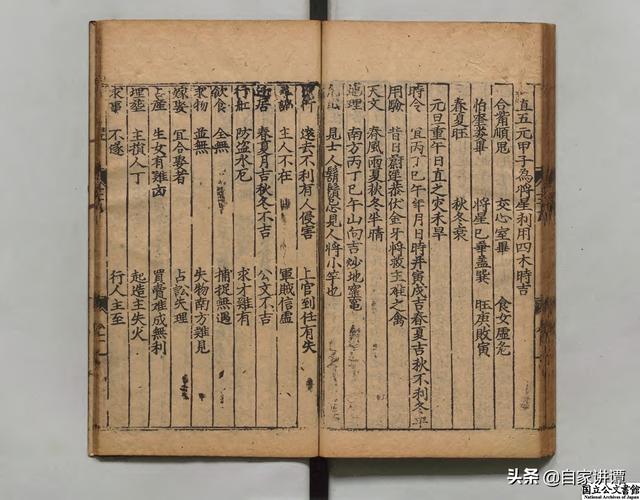 直五元甲子為將星利用四木時吉
合 順 交心室畢 食女虛危
怕奎婁畢 將星已 蓋巽 旺庚敗寅
春夏旺 秋冬衰
元旦重午日直之灾未旱
時令 宜丙丁巳午年月日時并寅戌吉春夏吉秋不利冬平
用驗 昔日尉遲恭伏金牙將 主 之禽
天文 春風雨夏秋冬半晴
地理 南方丙丁巳午山向吉 地窰竈
見士人鬚髯忌見人將小 也
遠去不利有人侵害 上官到任有失
主人不在 軍賊信虛
居 春夏月吉秋冬不吉 公文不吉
行舡 防盜水死 求才難有
飲食 全無 捕捉無遇
求物 並無 失物南方難見
嫁娶 宜合娶者 占訟失理
產 生女有難 買賣難成無利
埋 主損人丁 起造主失火
求事 不遂 行人主至
头条 @自家讲谭
国立公文書館
National Archives of Japan